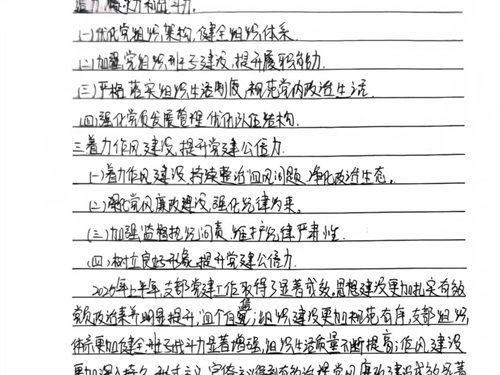 (一)优化党组织架构,健全组织体系.
(二)加强党组织班子建设,提升履职能力.
(三)严格落实组织生活制度,规范党内政治生活.
(四)强化党员发展管理,优化队伍结构.
三.着力作风建设,提升党建公信力.
(一)着力作风建设,持续整治四风问题,净化政治生态.
(二)强化党风廉政建设,强化纪律约束.
(三)加强监督执纪问责,维护纪律严肃性.
(四)树立良好形象,提升党建公信力.
年上半年,支部党建工作取得了显著成效,思想建设更加扎实有效
党员政治素养明显提升,四个自信 组织建设更加规范有序,支部组织
体系更加健全,班子战斗力显著增强,组织生活质量不断提高;作风建设
更加深入持久,形式主义、官僚主义得到有效治理,党风廉政建设成效显著